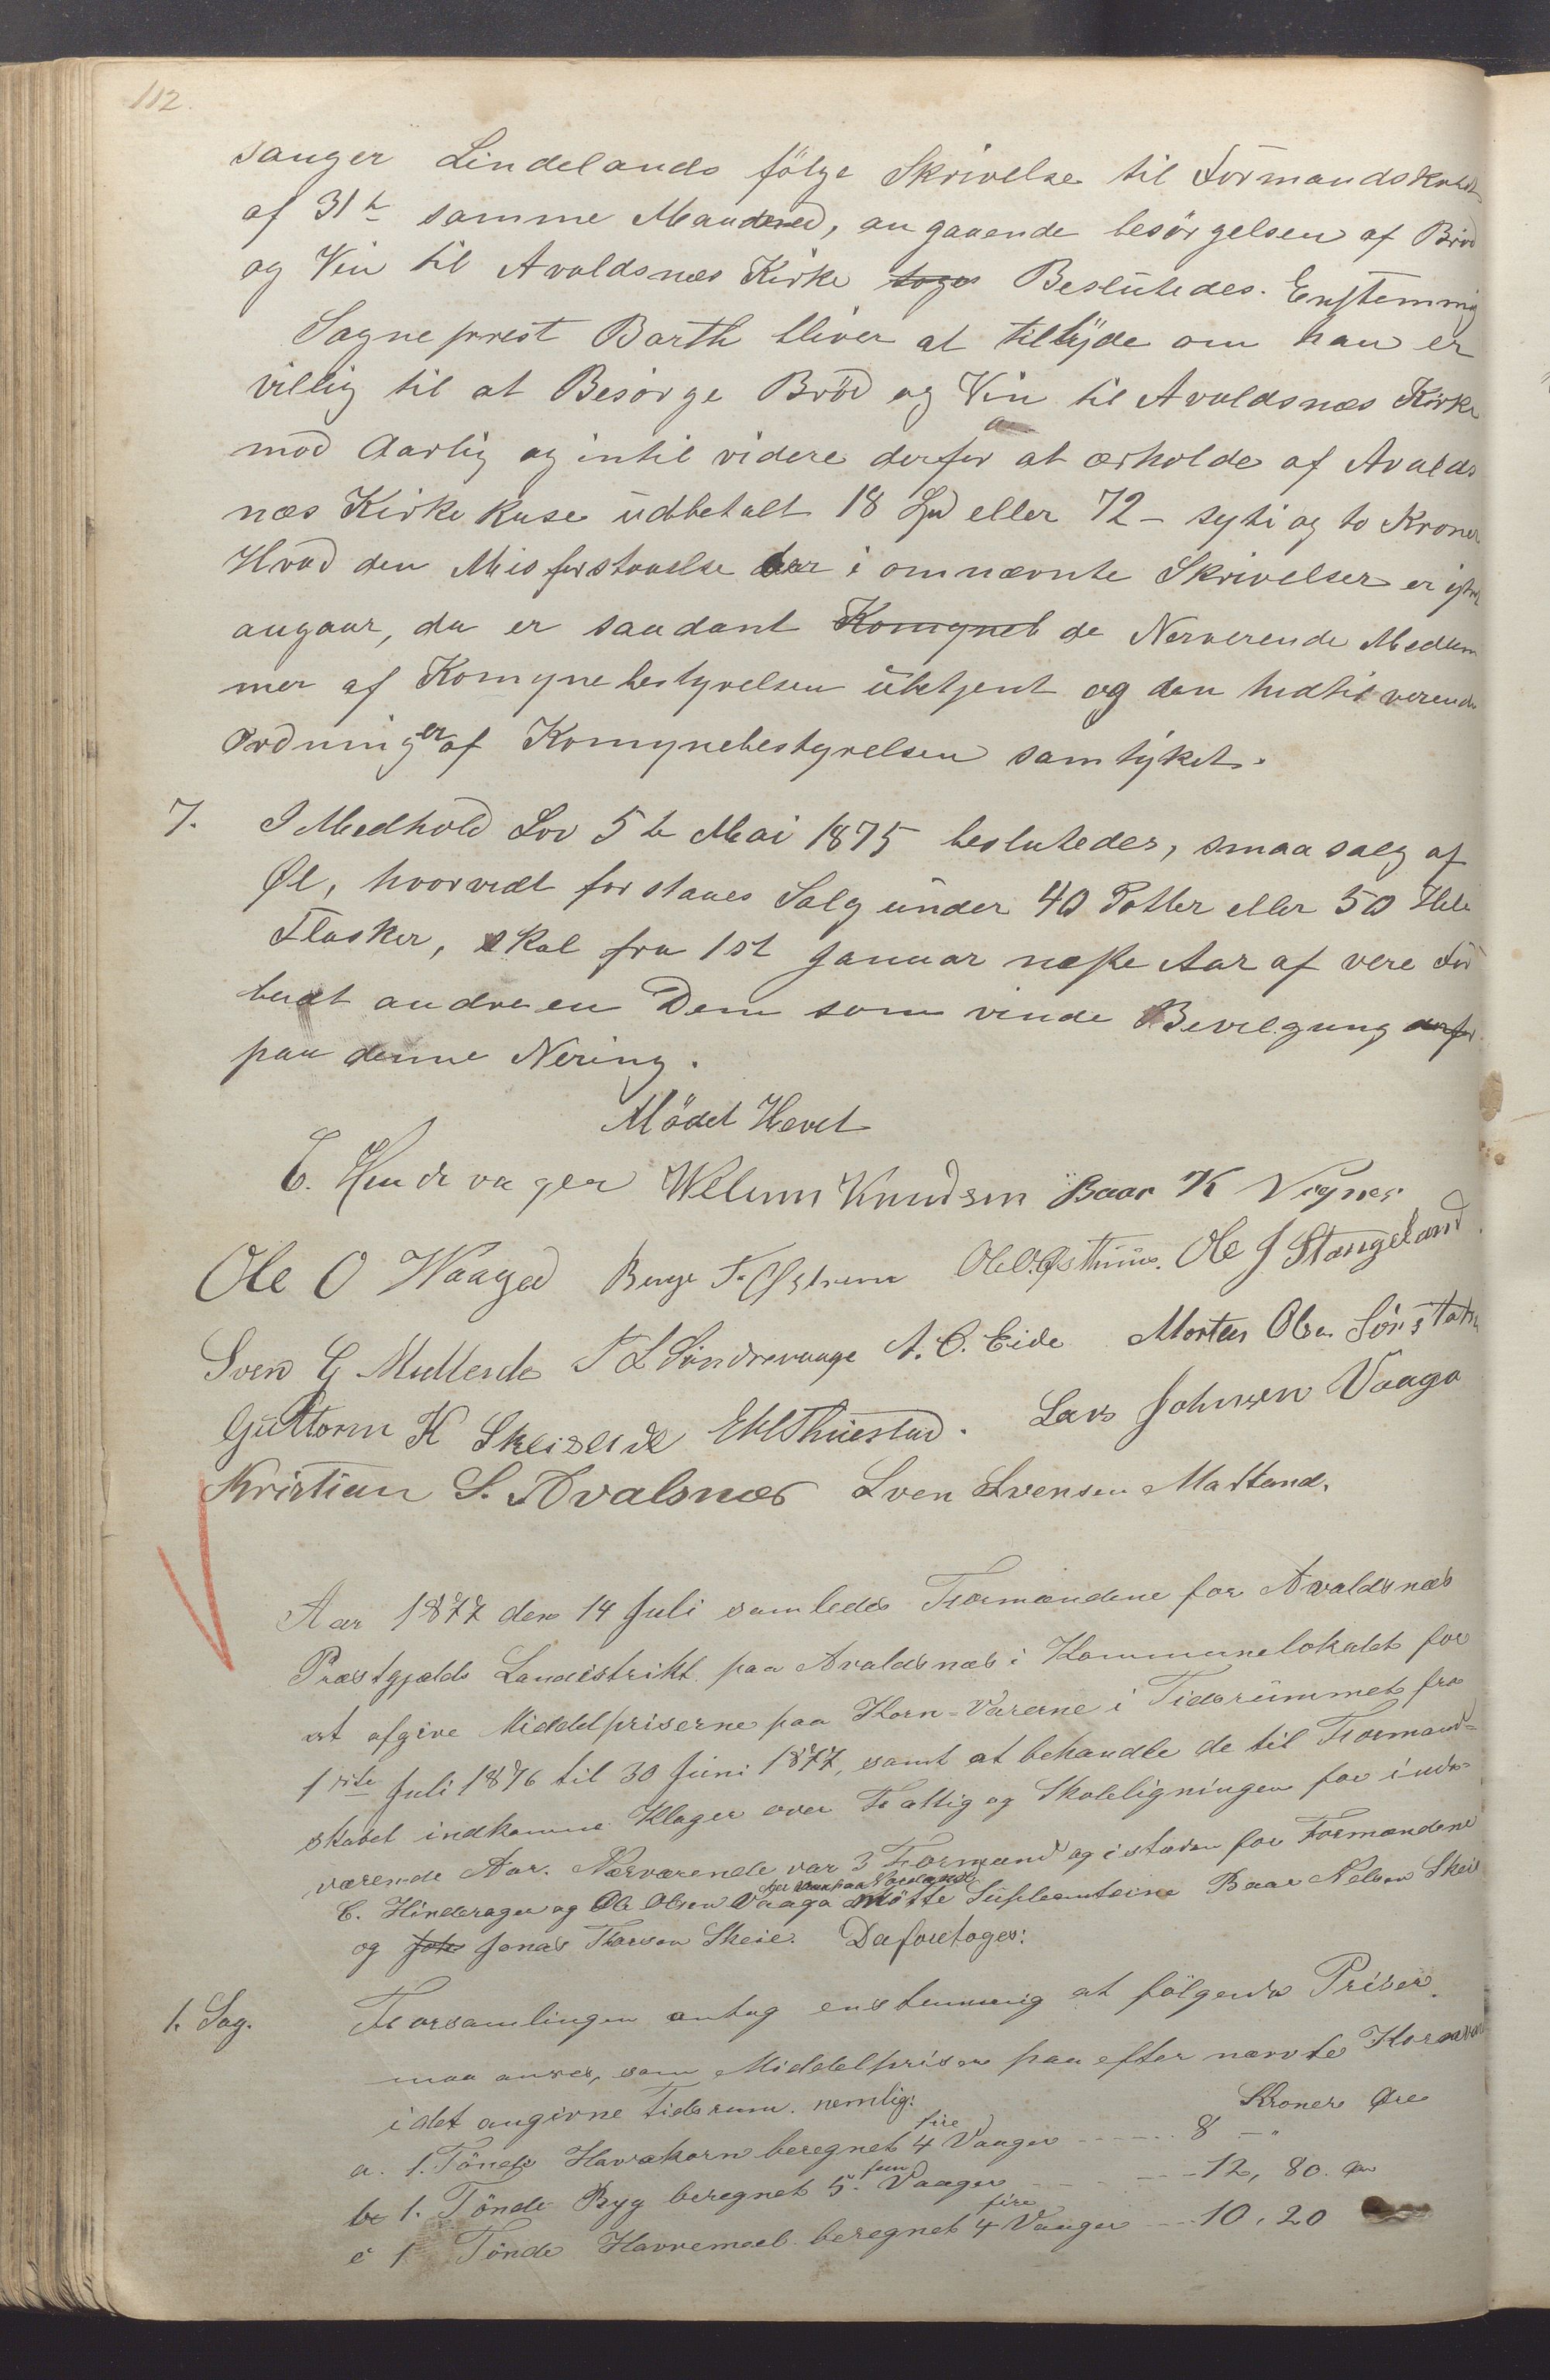 112.
sanger Lindelands fölge Skrivelse til Formandskabet
af 31te samme Maaned, angaaende besörgelsen af Bröd
og Vin til Avaldsnes Kirke toges Beslutedes. Enstemmig
Sogneprest Barth bliver at tilbyde om han er
villig til at Besörge Bröd og Vin til Avaldsnæs Kirke
mod Aarlig og intil videre derfor at ærholde af Avalds
næs Kirke kase üdbetalt 18 Spd eller 72 - syti og to Kroner
Hvad den Misforstaaelse der i omnævnte Skrivelser er
angaar, da er saadant Komynet de Nerverende Medlem
mer af Komynebestyrelsen übekjent og den hidtil verende
Ordning er af Komynebestyrelsen samtyket.
7. I Medhold Lov 5te Mai 1875 beslutedes, smaa salg af
Øl, hvorvidt forstaaes Salg ünder 40 Potter eller 50 Hele
Flasker, skal fra 1st Januar neste Aar af vere For
budt andre en Dem som vinde Bevilgning derfor
paa denne Nering.
Mödet Hevet
C. Hinderager Welum Knudsen Baar K Vignes
Ole O Waaga Berge T. Østrem Ole O. Østhüüs. Ole J Stangeland
Sven G Mütlerd T L Söndrevaage A. O. Eide Morten Olsen
Guttorm K Skeiseid Thüestad. Lars Johnsen Vaaga
Kristian S. Avalsnæs Sven Svensen Marland.
Aar 1877 den 14 Juli samledes Formændene for Avaldsnæs
Præstgjelds Landistrikt paa Avaldsnæs i Kommunelokalet for
at afgive Middelpriserne paa Korn-Varerne i Tidsrümmet fra
1ste Juli 1876 til 30 Juni 1877, samt at behandle de til Formand-
skabet indkomne Klager over Fattig og Skoleligningen for inde-
værende Aar. Nærværende var 3 Formænd og istæden for Formændene
C. Hinderager og Ole Olsen Vaaga mötte Supleanterne Baar Nelsen Skeie
og Joh Jonas Thorsen Skeie. Da foretoges:
1. Sag. Forsamlingen antog enstemmig at fölgende Priser
maa anses, som Middelpriser paa efter nævnte Kornvarer
i det angivne Tidsrum. nemlig: Kroner Øre
a. 1. Tönde Havrekorn beregnet 4 fire Vaager ------ 8 - "
b 1. Tönde Byg beregnet 5. fem Vaager ---- 12, 80.
c 1 Tönde Havremeel beregnet 4 fire Vaager --- 10, 20